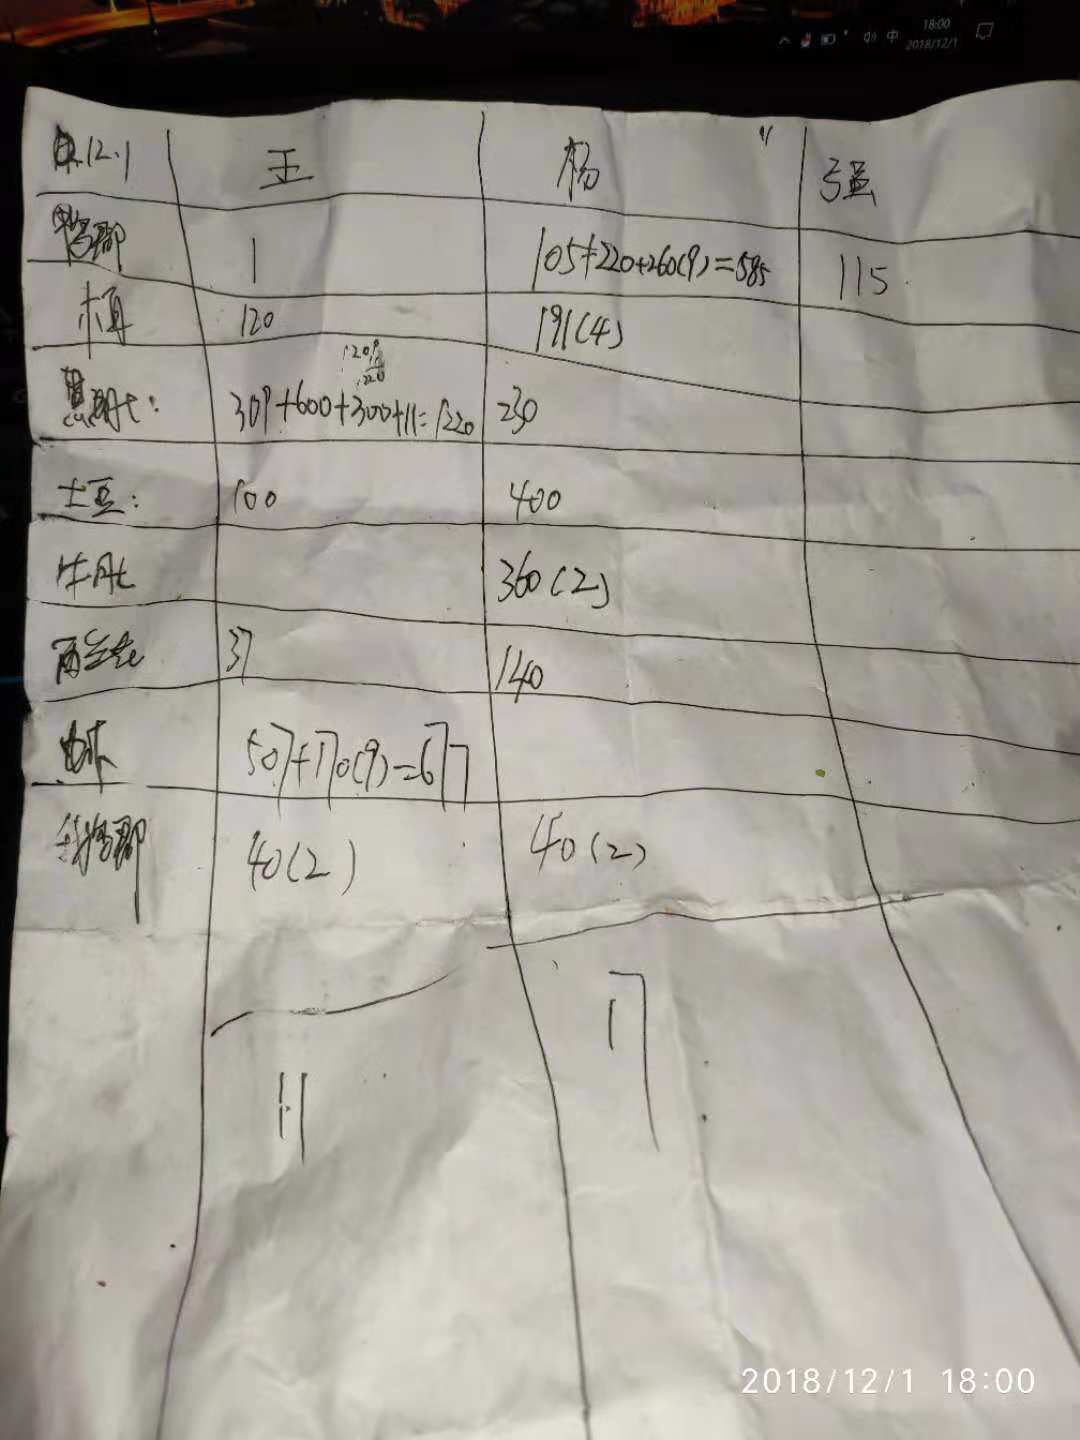 18:00
中 2018/12/1
12.1 王 杨 强
鸭郡 1 105+220+260(9)=585 115
120 191(4)
1209
1220
黑肚: 309+600+300+11=1220 230
土豆: 100 400
牛肚 360(2)
西兰花 37 140
507+170(9)=677
40(2) 40(2)
17
11
2018/12/1 18:00